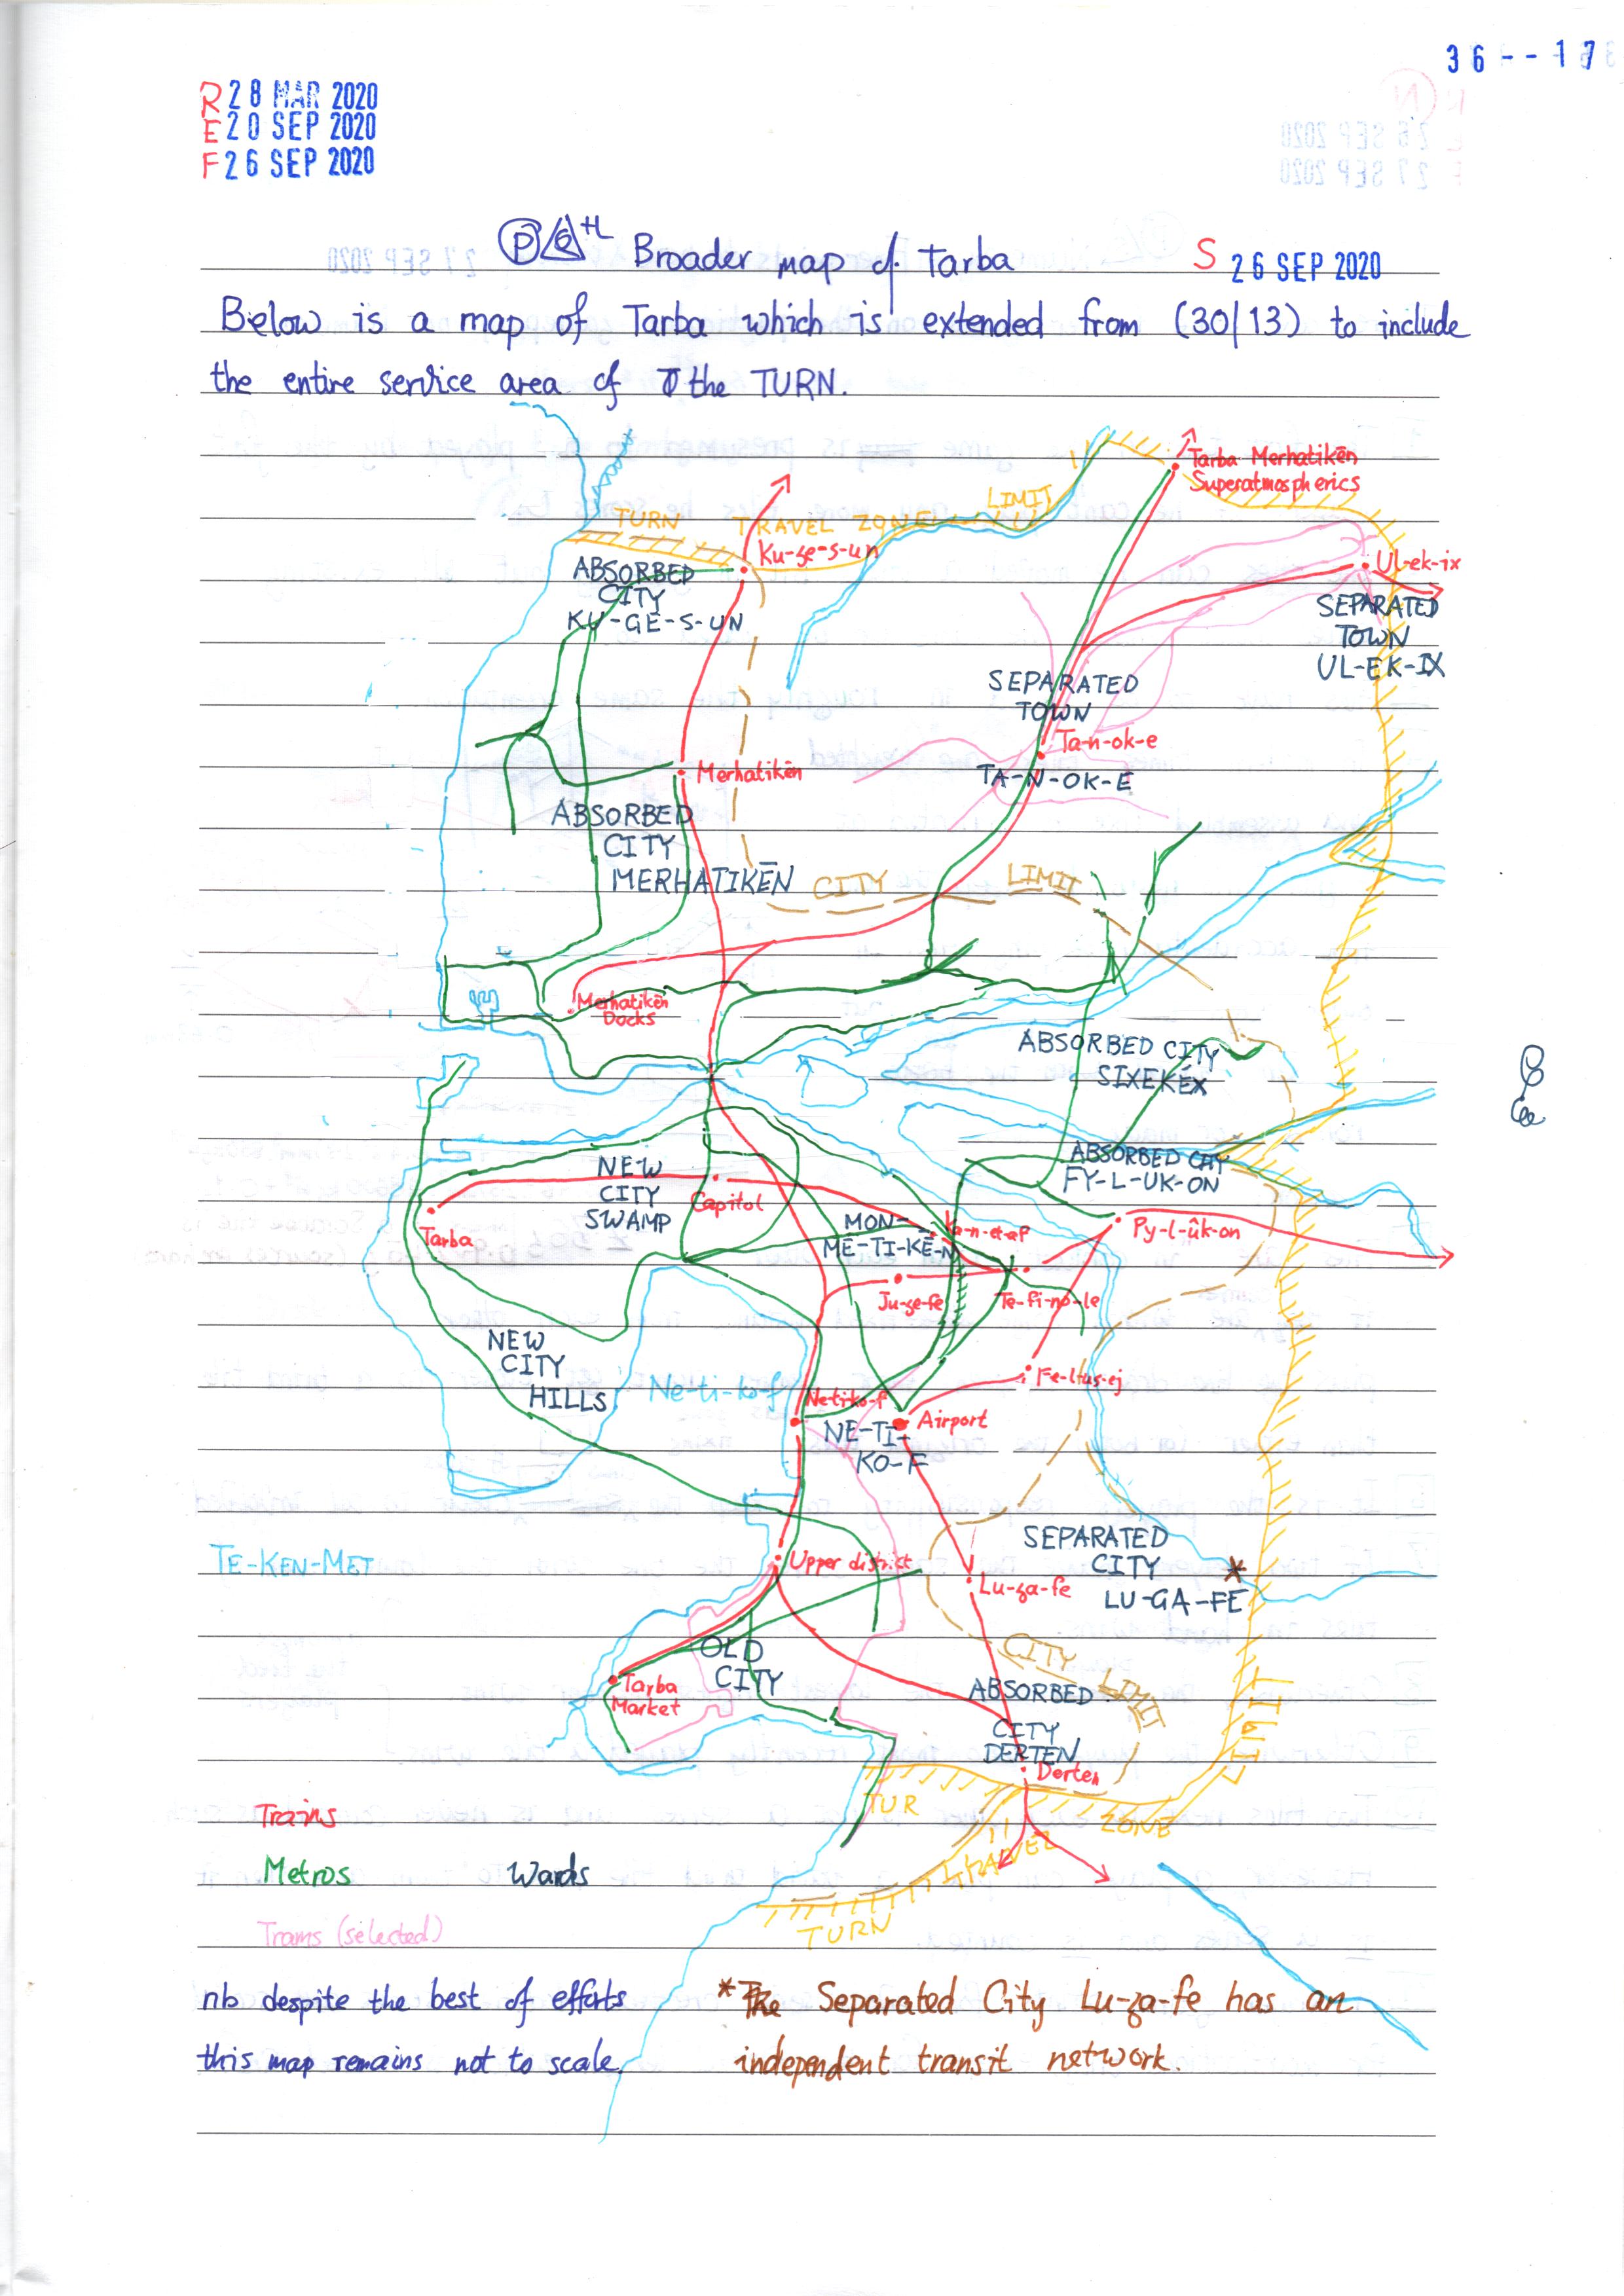 36--17
R 28 MAR 2020
E 20 SEP 2020
F 26 SEP 2020
Broader map of Tarba
S 26 SEP 2020
Below is a map of Tarba which is extended from (30/13) to include
the entire service area of the TURN.
Tarba Merhatikēn
Superatmospherics
TURN TRAVEL ZONE LIMIT
Ku-ge-s-un
Ul-ek-ix
ABSORBED
CITY
KU-GE-S-UN
SEPARATED
TOWN
UL-EK-IX
SEPARATED
TOWN
TA-N-OK-E
Ta-n-ok-e
Merhatikēn
ABSORBED
CITY
MERHATIKĒN
CITY LIMIT
Merhatikēn
Docks
ABSORBED CITY
SIXEKÉX
ABSORBED CITY
FY-L-UK-ON
NEW
CITY
SWAMP
Capitol
Tarba
MON-
MĒ-TI-KĒ-N
Py-l-ûk-on
Ju-ge-fe
Te-fi-no-le
NEW
CITY
HILLS
Ne-ti-ko-f
Ne-ti-ko-f
Airport
NE-TI-
KO-F
TE-KEN-MET
Upper district
Lu-ga-fe
SEPARATED
CITY *
LU-GA-FE
OLD
CITY
Tarba
Market
CITY LIMIT
ABSORBED
CITY
DERTEN
Derten
LIMIT
TUR
ZONE
TRAVEL
TURN
Trains
Metros
Wards
Trams (selected)
nb despite the best of efforts
this map remains not to scale.
*The Separated City Lu-ga-fe has an
independent transit network.